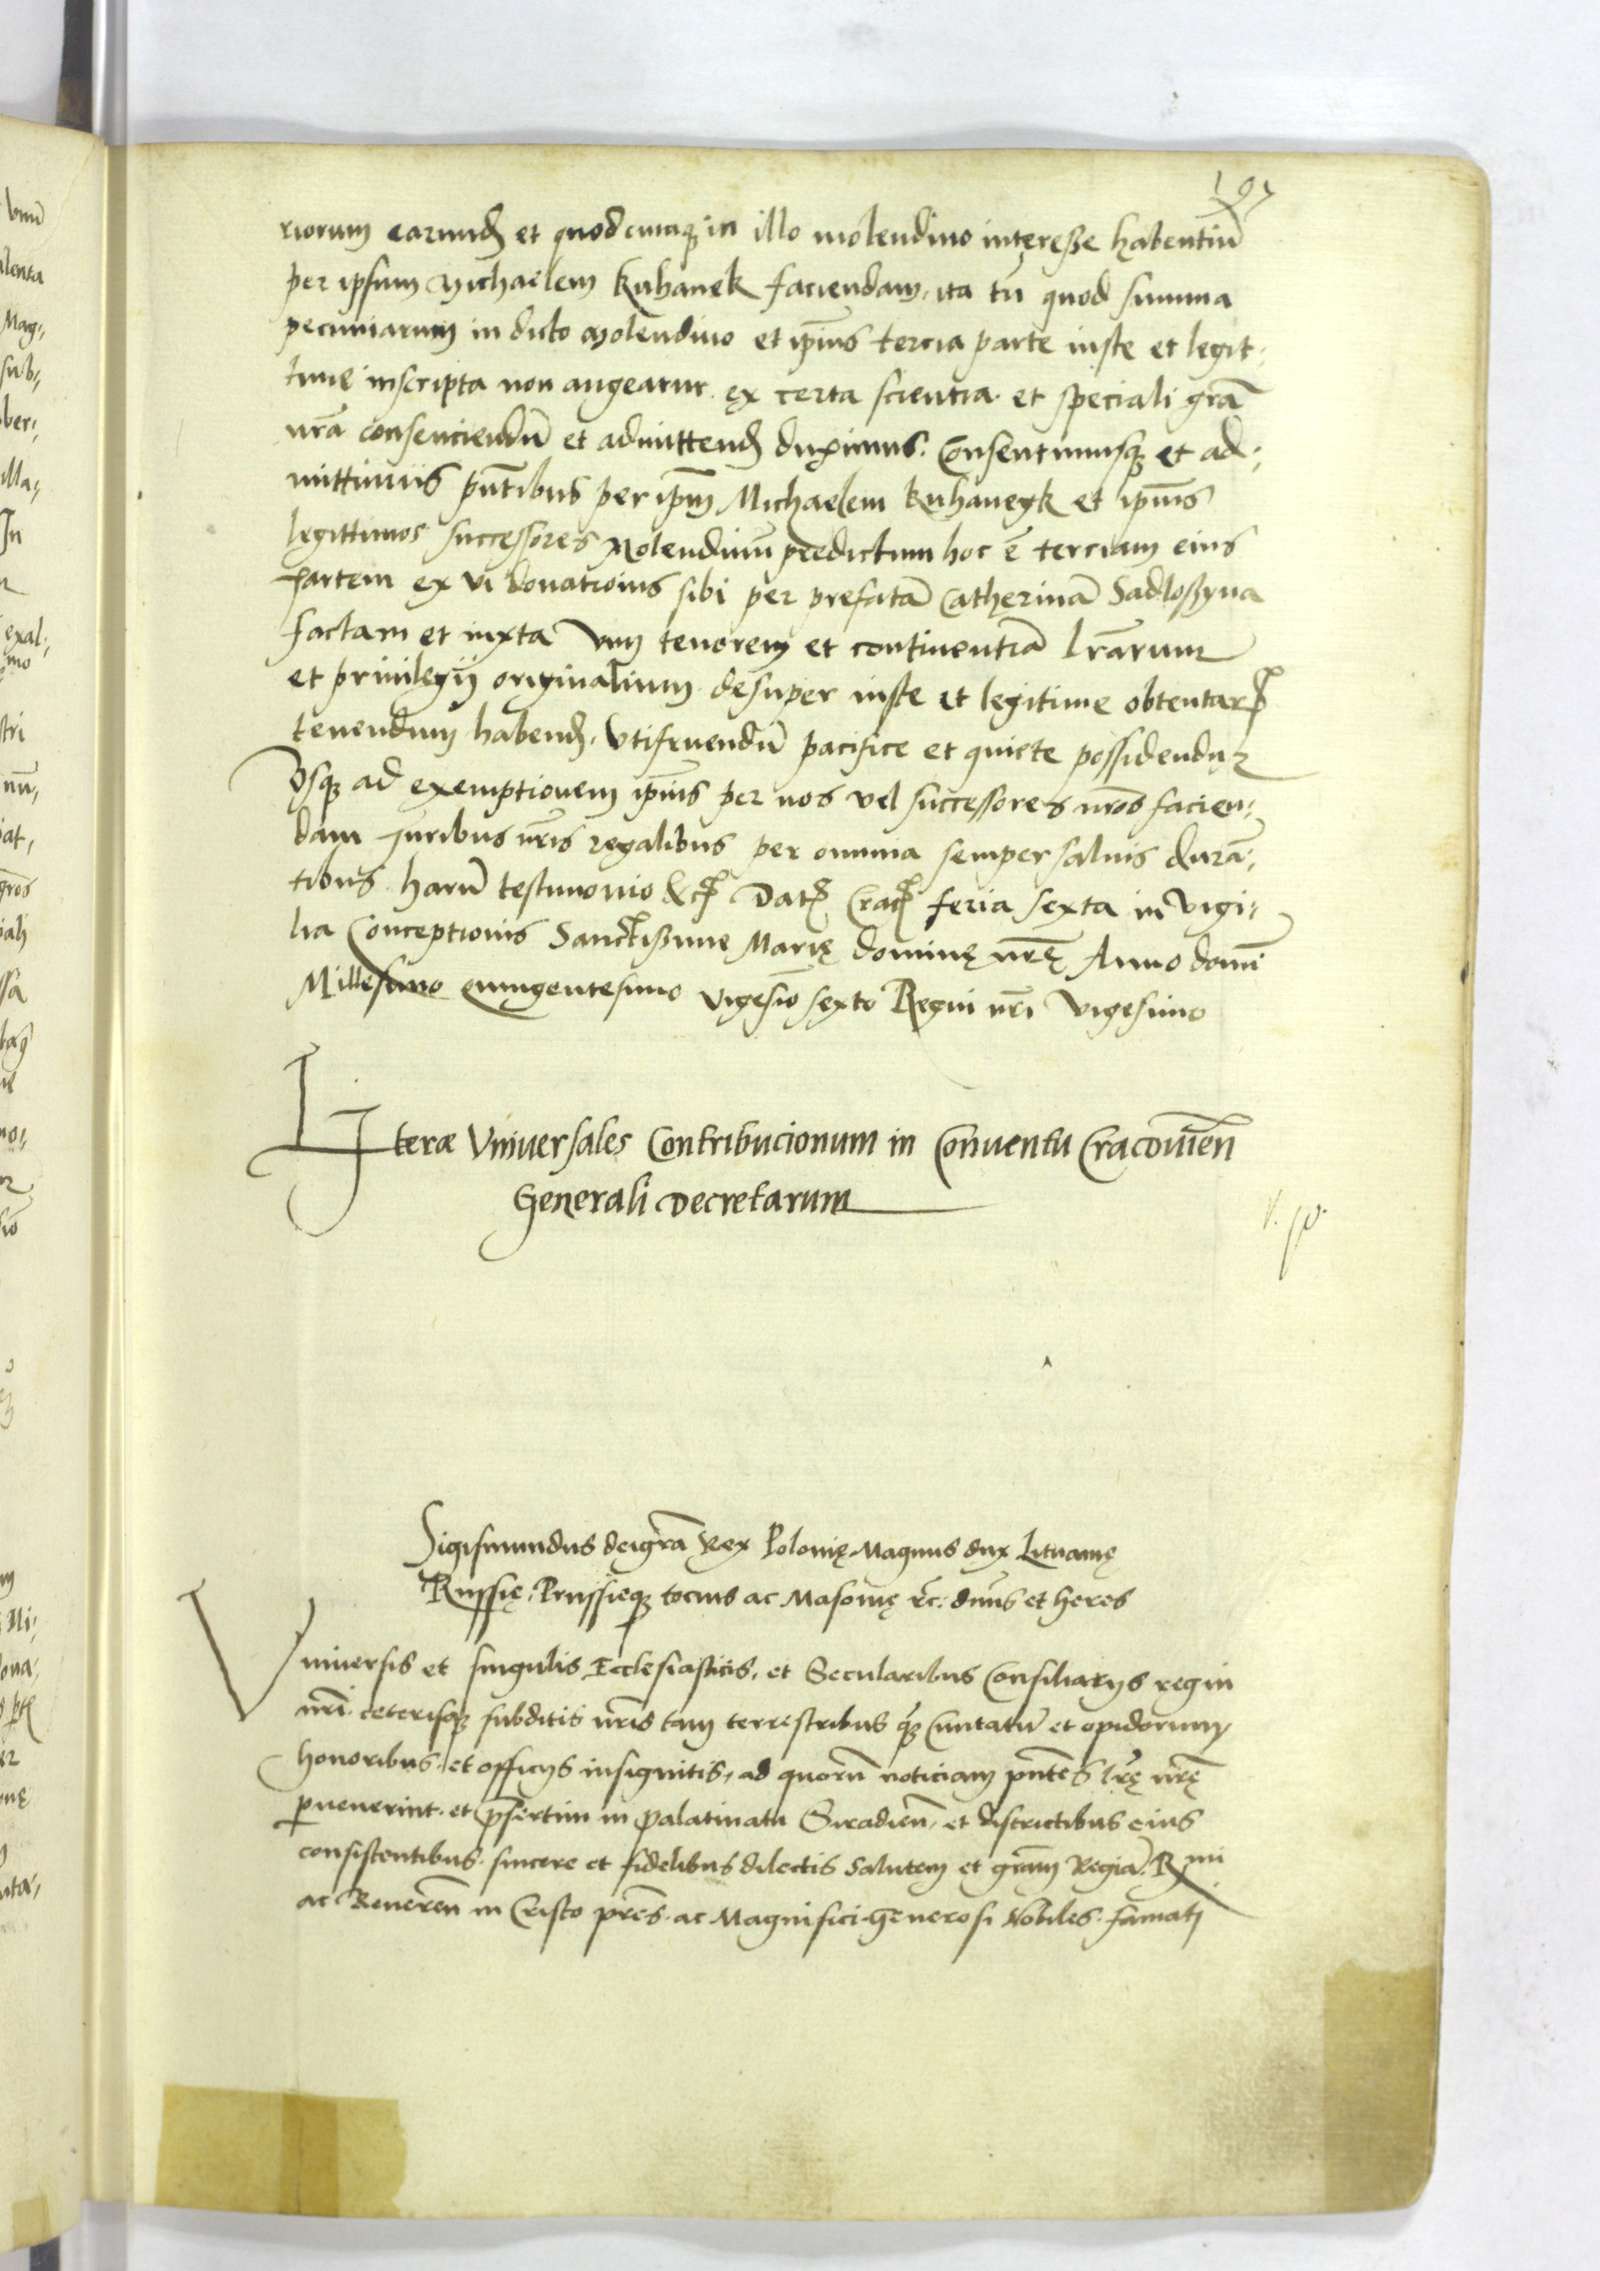 107
riorum earund et quodcunq in illo molendino interesse habentiũ
per ipsum Michaelem Kuhanek faciendam, ita tñ quod summa
pecuniarum in dicto molendino et ip̃ius tercia parte iuste et legit-
time inscripta non augeatur ex certa scientia et speciali grã
nrã consenciendũ et admittend duximus. Consentimusq et ad-
mittimus pñtibus per ip̃m Michaelem Kuhaneyk et ip̃ius
legittimos successores Molendinũ predictum hoc ẽ terciam eius
partem ex vi donatiõis sibi per prefatã Catherinã Sadloßyna
factam et iuxta vim tenorem et continentiã lrãrum
et privilegij originalium desuper iuste et legitime obtentar
tenendum habend, vtifruendũ pacifice et quiete possidendũ
vsq ad exemptionem ip̃ius per nos vel successores nrõs facien-
dam Juribus nrĩs regalibus per omnia semper salvis durã-
tibus harũ testimonio &c Dat Crac feria sexta in vigi-
lia Conceptionis Sanctissime Marię dominę nrę Anno domĩ
Millesimo quingentesimo vigesiõ sexto Regni nrĩ vigesimo
Literæ Vniversales Contribucionum in Conventu Cracovieñ
Generali Decretarum
Sigismundus dei grã Rex Polonię Magnus dux Lituanię
Russię, Prussieq tocius ac Masovię &c. dñus et heres
Vniversis et singulis Ecclesiasticis, et Secularibus Consiliarijs regni
nrĩ ceterisq subditis nrĩs tam terrestribus q Civitatũ et opidorum,
honoribus et officijs insignitis, ad quorũ noticiam pñtes lrę nrę
pervenerint et presertim in palatinatu Siradieñ, et districtibus eius
consistentibus sincere et fidelibus dilectis Salutem et grãm Regiã. Rmi
ac Reverẽn in Cristo pr̃es ac Magnifici Generosi Nobiles famati